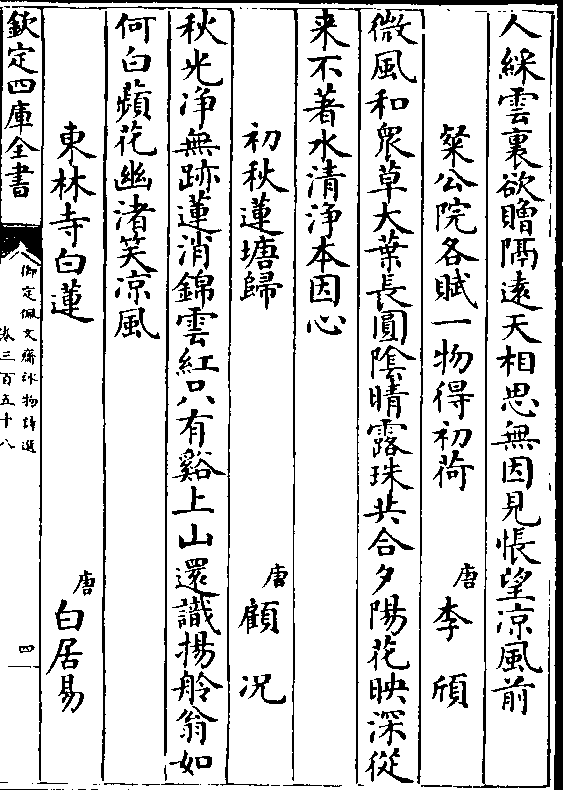 人綵雲裏欲贈隔逺天相思無因見悵望凉風前
粲公院各賦一物得初荷 唐 李頎
微風和衆草大葉長圓陰晴露珠共合夕陽花映深從
来不著水清净本因心
初秋蓮塘歸 唐 顧况
秋光净無跡蓮消錦雲紅只有谿上山還識揚舲翁如
何白蘋花幽渚笑凉風
東林寺白蓮 唐 白居易
欽定四庫全書
御定佩文齋咏物詩選
卷三百五十八
四